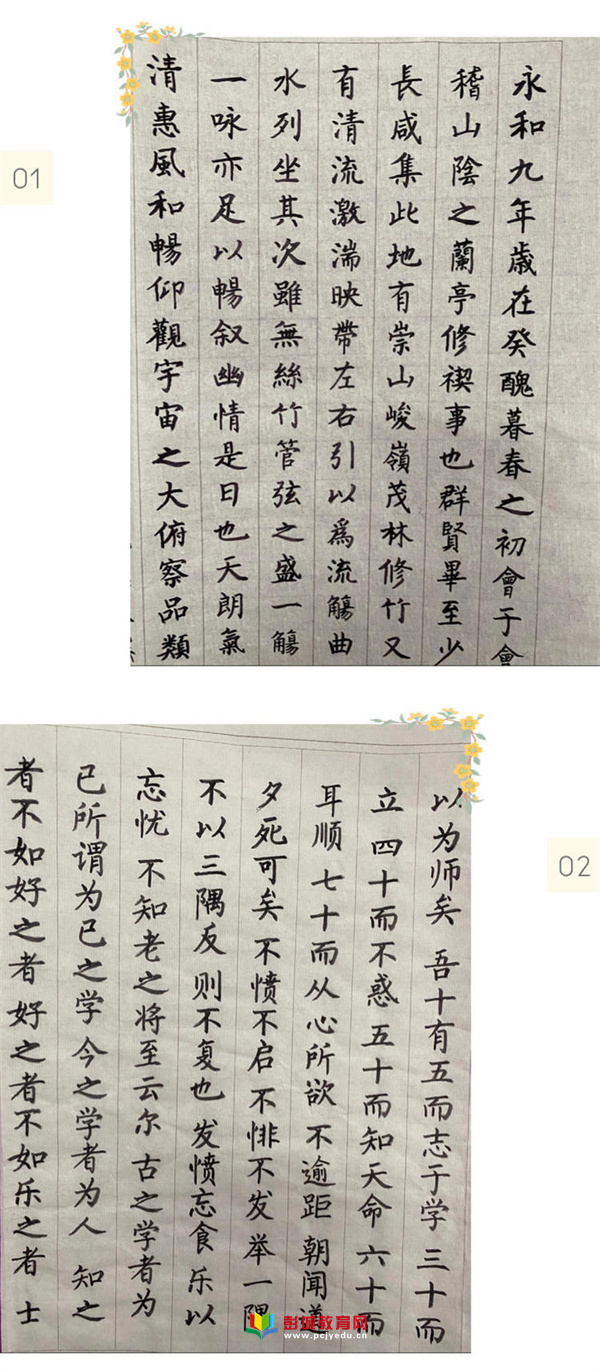 01
永和九年歲在癸醜暮春之初會于會
稽山陰之蘭亭修禊事也群賢畢至少
長咸集此地有崇山峻嶺茂林修竹又
有清流激湍映帶左右引以爲流觴曲
水列坐其次雖無絲竹管弦之盛一觴
一咏亦足以暢叙幽情是日也天朗氣
清惠風和暢仰觀宇宙之大俯察品類
02
以为师矣 吾十有五而志于学 三十而
立 四十而不惑 五十而知天命 六十而
耳顺 七十而从心所欲 不逾距 朝闻道
夕死可矣 不愤不启 不悱不发 举一隅
不以三隅反 则不复也 发愤忘食 乐以
忘忧 不知老之将至云尔 古之学者为
已所谓为已之学 今之学者为人 知之
者不如好之者 好之者不如乐之者 士
彭城教育网
www.pcjyedu.cn